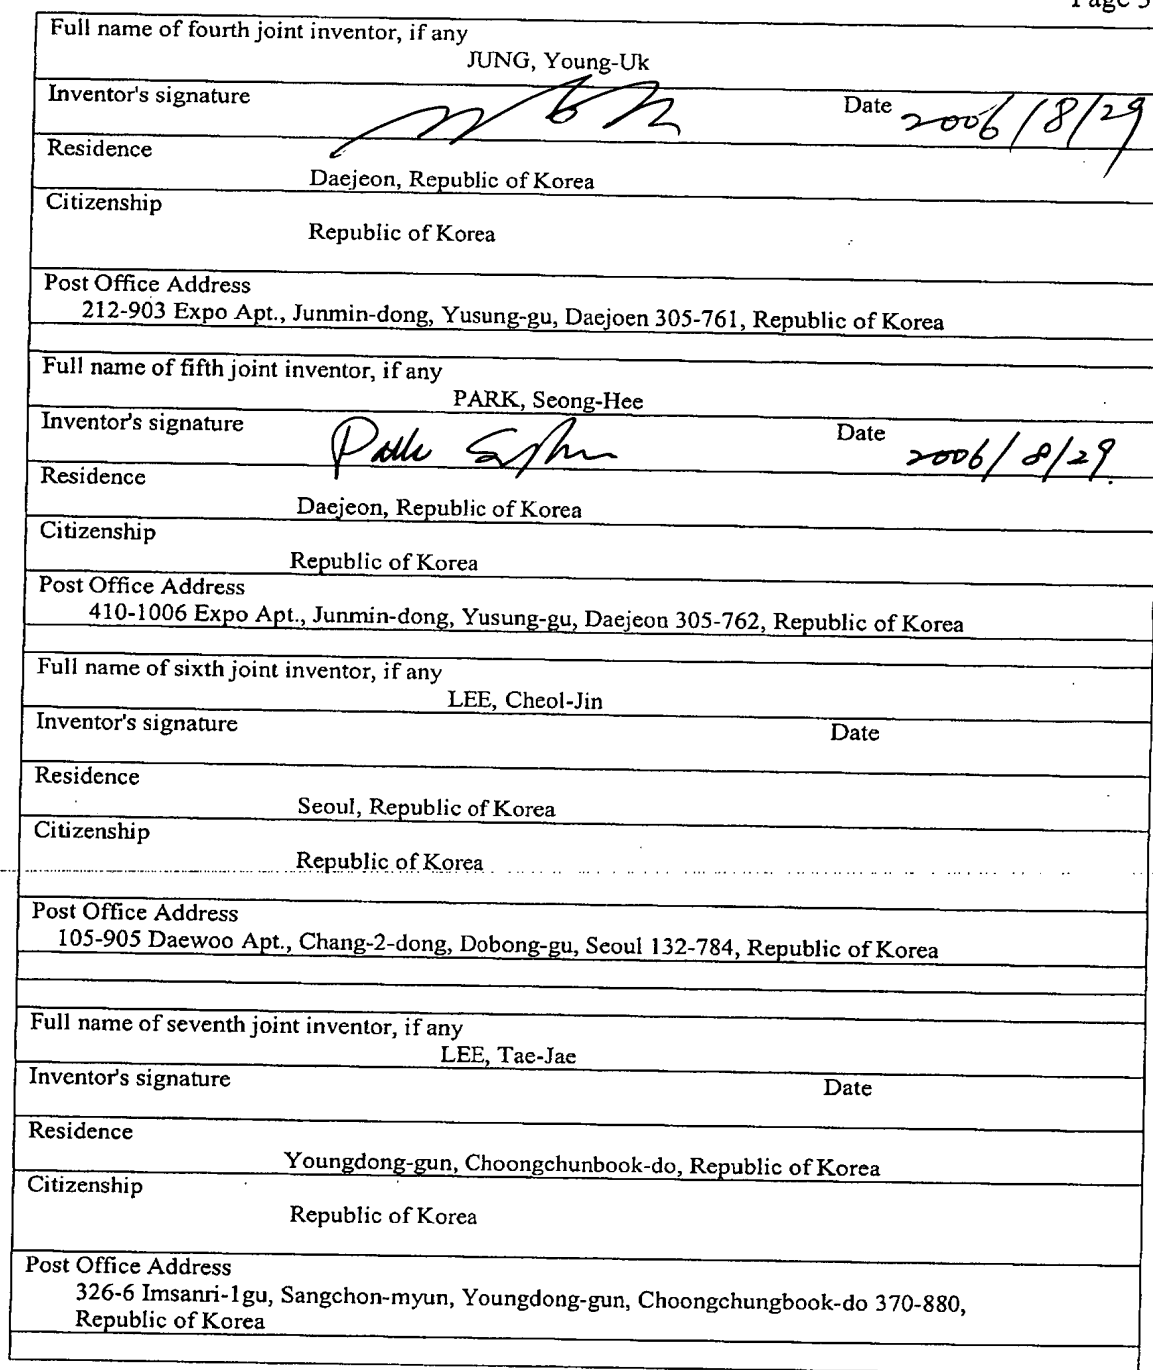 Page 3
Full name of fourth joint inventor, if any
JUNG, Young-Uk
Inventor's signature Date 2006/8/29
Residence
Daejeon, Republic of Korea
Citizenship
Republic of Korea
Post Office Address
212-903 Expo Apt., Junmin-dong, Yusung-gu, Daejoen 305-761, Republic of Korea
Full name of fifth joint inventor, if any
PARK, Seong-Hee
Inventor's signature Date 2006/8/29.
Residence
Daejeon, Republic of Korea
Citizenship
Republic of Korea
Post Office Address
410-1006 Expo Apt., Junmin-dong, Yusung-gu, Daejeon 305-762, Republic of Korea
Full name of sixth joint inventor, if any
LEE, Cheol-Jin
Inventor's signature Date
Residence
Seoul, Republic of Korea
Citizenship
Republic of Korea
Post Office Address
105-905 Daewoo Apt., Chang-2-dong, Dobong-gu, Seoul 132-784, Republic of Korea
Full name of seventh joint inventor, if any
LEE, Tae-Jae
Inventor's signature Date
Residence
Youngdong-gun, Choongchunbook-do, Republic of Korea
Citizenship
Republic of Korea
Post Office Address
326-6 Imsanri-1gu, Sangchon-myun, Youngdong-gun, Choongchungbook-do 370-880,
Republic of Korea